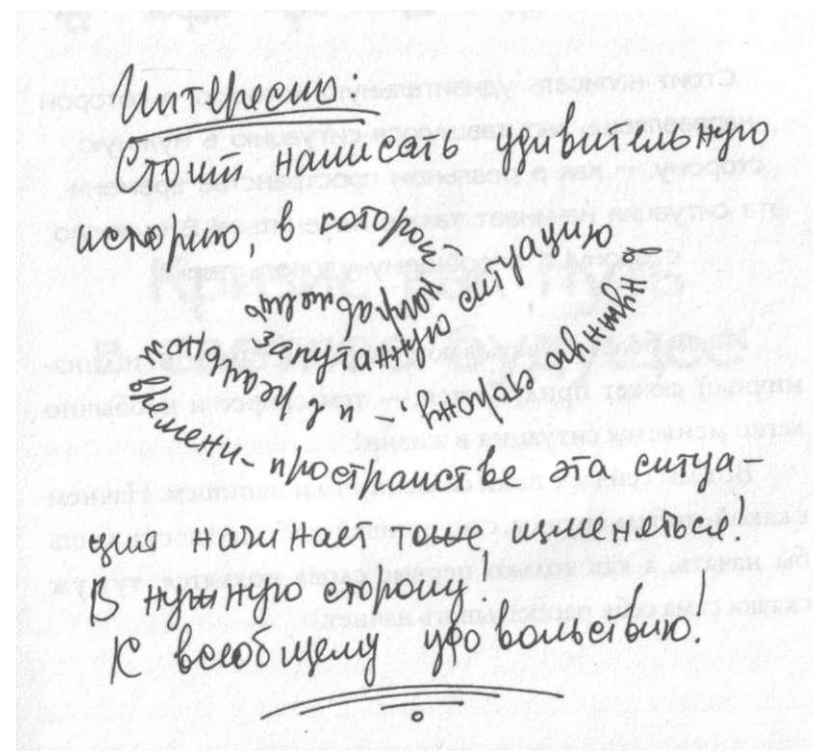 Интересно:
Стоит написать удивительную
историю, в которой
запутанную ситуацию
в нужную сторону, – и в реальном
времени-пространстве эта ситуа-
ция начинает тоже изменяться!
В нужную сторону!
К всеобщему удовольствию!